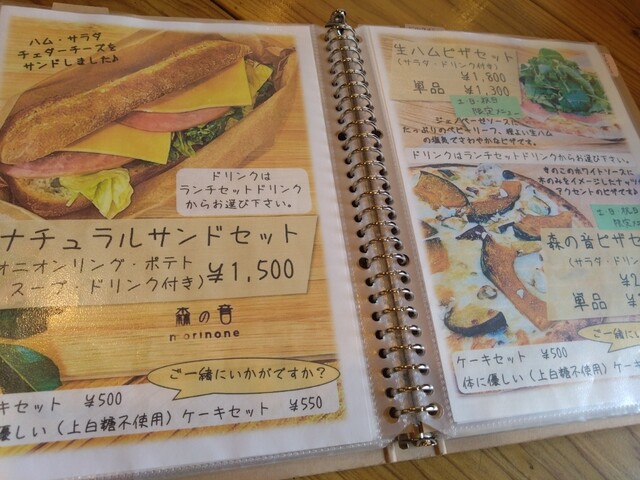 ハム・サラダ
チェダーチーズを
サンドしました♪
ドリンクは
ランチセットドリンク
からお選び下さい。
ナチュラルサンドセット
オニオンリング・ポテト
スープ・ドリンク付き)
¥1,500
森の音
morinone
ご一緒にいかがですか？
キセット ¥500
優しい(上白糖不使用)ケーキセット ¥550
生ハムピザセット
(サラダ・ドリンク付き)
¥1,800
単品 ¥1,300
土・日・祝日
限定メニュー
ジェノベーゼソースに
たっぷりのベビーリーフ、程よい生ハム
の塩気でさわやかなピザです。
ドリンクはランチセットドリンクからお選び下さい。
きのこのホワイトソースに
木のみをイメージしたナッツ
アクセントのピザです
土・日・祝日
限定
森の音ピザセ
(サラダ・ドリン
単品
ご一緒にい
ケーキセット ¥500
体に優しい(上白糖不使用)ケーキ